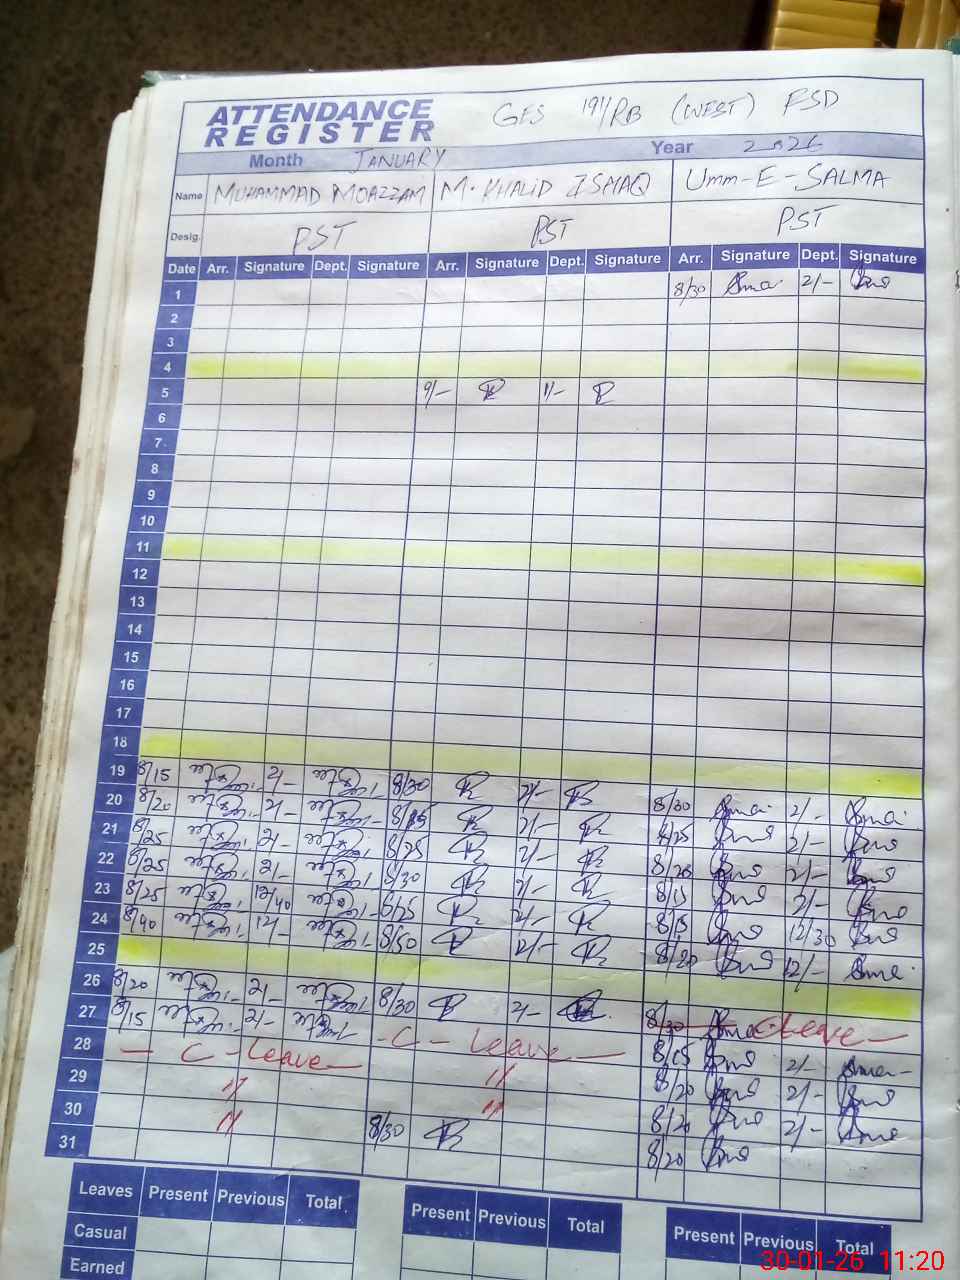 ATTENDANCE REGISTER
GES 191/RB (WEST) FSD
Month JANUARY Year 2026
Name MUHAMMAD MOAZZAM M. KHALID ISHAQ Umm-E-SALMA
Desig. PST PST PST
Date Arr. Signature Dept. Signature Arr. Signature Dept. Signature Arr. Signature Dept. Signature
1 8/30 2/-
2
3
4
5 9/- 1/-
6
7
8
9
10
11
12
13
14
15
16
17
18
19 8/15 2/- 8/30 2/- 8/30 2/-
20 8/20 2/- 2/- 8/25 2/-
21 8/25 2/- 8/25 2/- 8/20 2/-
22 8/25 2/- 8/30 2/- 8/15 2/-
23 8/25 12/40 8/25 2/- 8/15 12/30
24 8/40 12/- 8/50 12/- 8/20 12/-
25
26 8/20 2/- 8/30 2/- 8/30 C Leave
27 8/15 2/- C - Leave 8/15 2/-
28 C - Leave 〃 8/20 2/-
29 〃 〃 8/20 2/-
30 〃 8/30 8/20
31
Leaves Present Previous Total Present Previous Total Present Previous Total
Casual
Earned
30-01-26 11:20